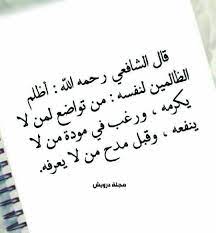 قال الشافعي رحمه لله : أظلم
الظالمين لنفسه : من تواضع لمن لا
يكرمه ، ورغب في مودة من لا
ينفعه ، وقبل مدح من لا يعرفه.
مجلة درويش